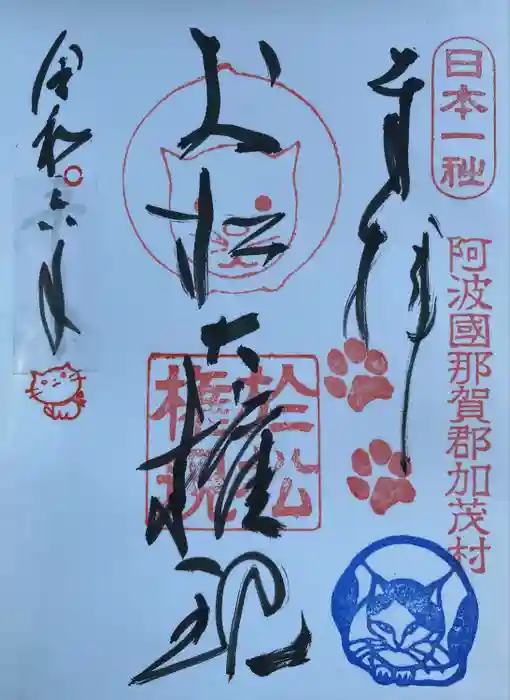 日本一社
阿波國那賀郡加茂村
奉拝
お松大権現
於松
権現
令和六年